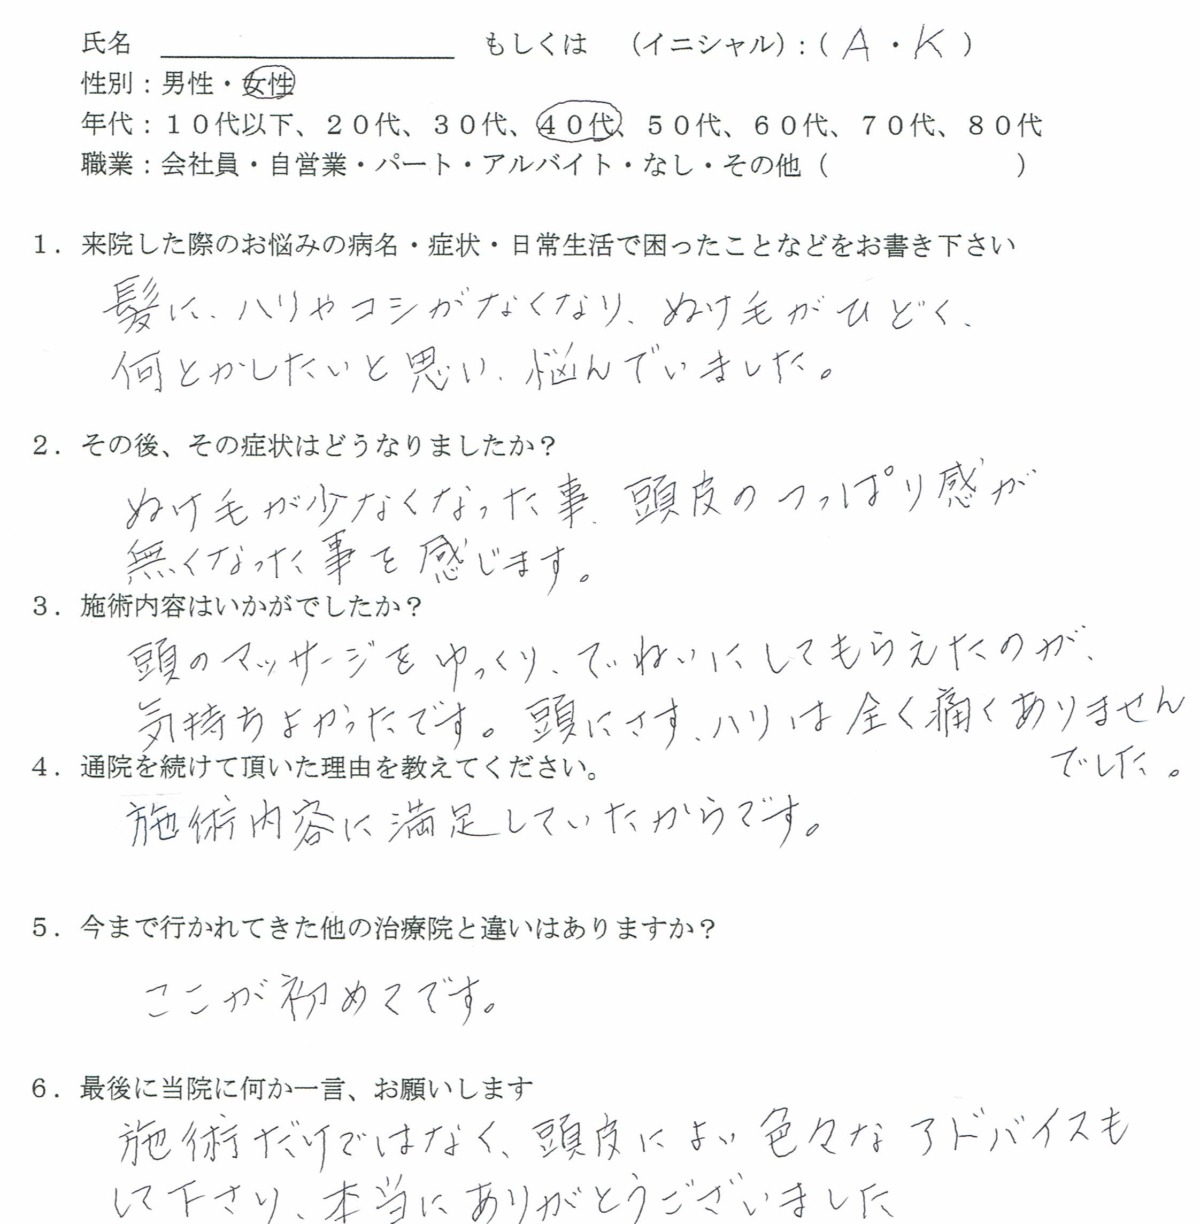 氏名　　もしくは　（イニシャル）：（ A ・ K ）
性別：男性・女性
年代：１０代以下、２０代、３０代、４０代、５０代、６０代、７０代、８０代
職業：会社員・自営業・パート・アルバイト・なし・その他（　　　　　　　）
１．来院した際のお悩みの病名・症状・日常生活で困ったことなどをお書き下さい
髪に、ハリやコシがなくなり、ぬけ毛がひどく、
何とかしたいと思い、悩んでいました。
２．その後、その症状はどうなりましたか？
ぬけ毛が少なくなった事、頭皮のつっぱり感が
無くなった事を感じます。
３．施術内容はいかがでしたか？
頭のマッサージをゆっくり、ていねいにしてもらえたのが、
気持ちよかったです。頭にさす、ハリは全く痛くありません
でした。
４．通院を続けて頂いた理由を教えてください。
施術内容に満足していたからです。
５．今まで行かれてきた他の治療院と違いはありますか？
ここが初めてです。
６．最後に当院に何か一言、お願いします
施術だけではなく、頭皮によい色々なアドバイスも
して下さり、本当にありがとうございました